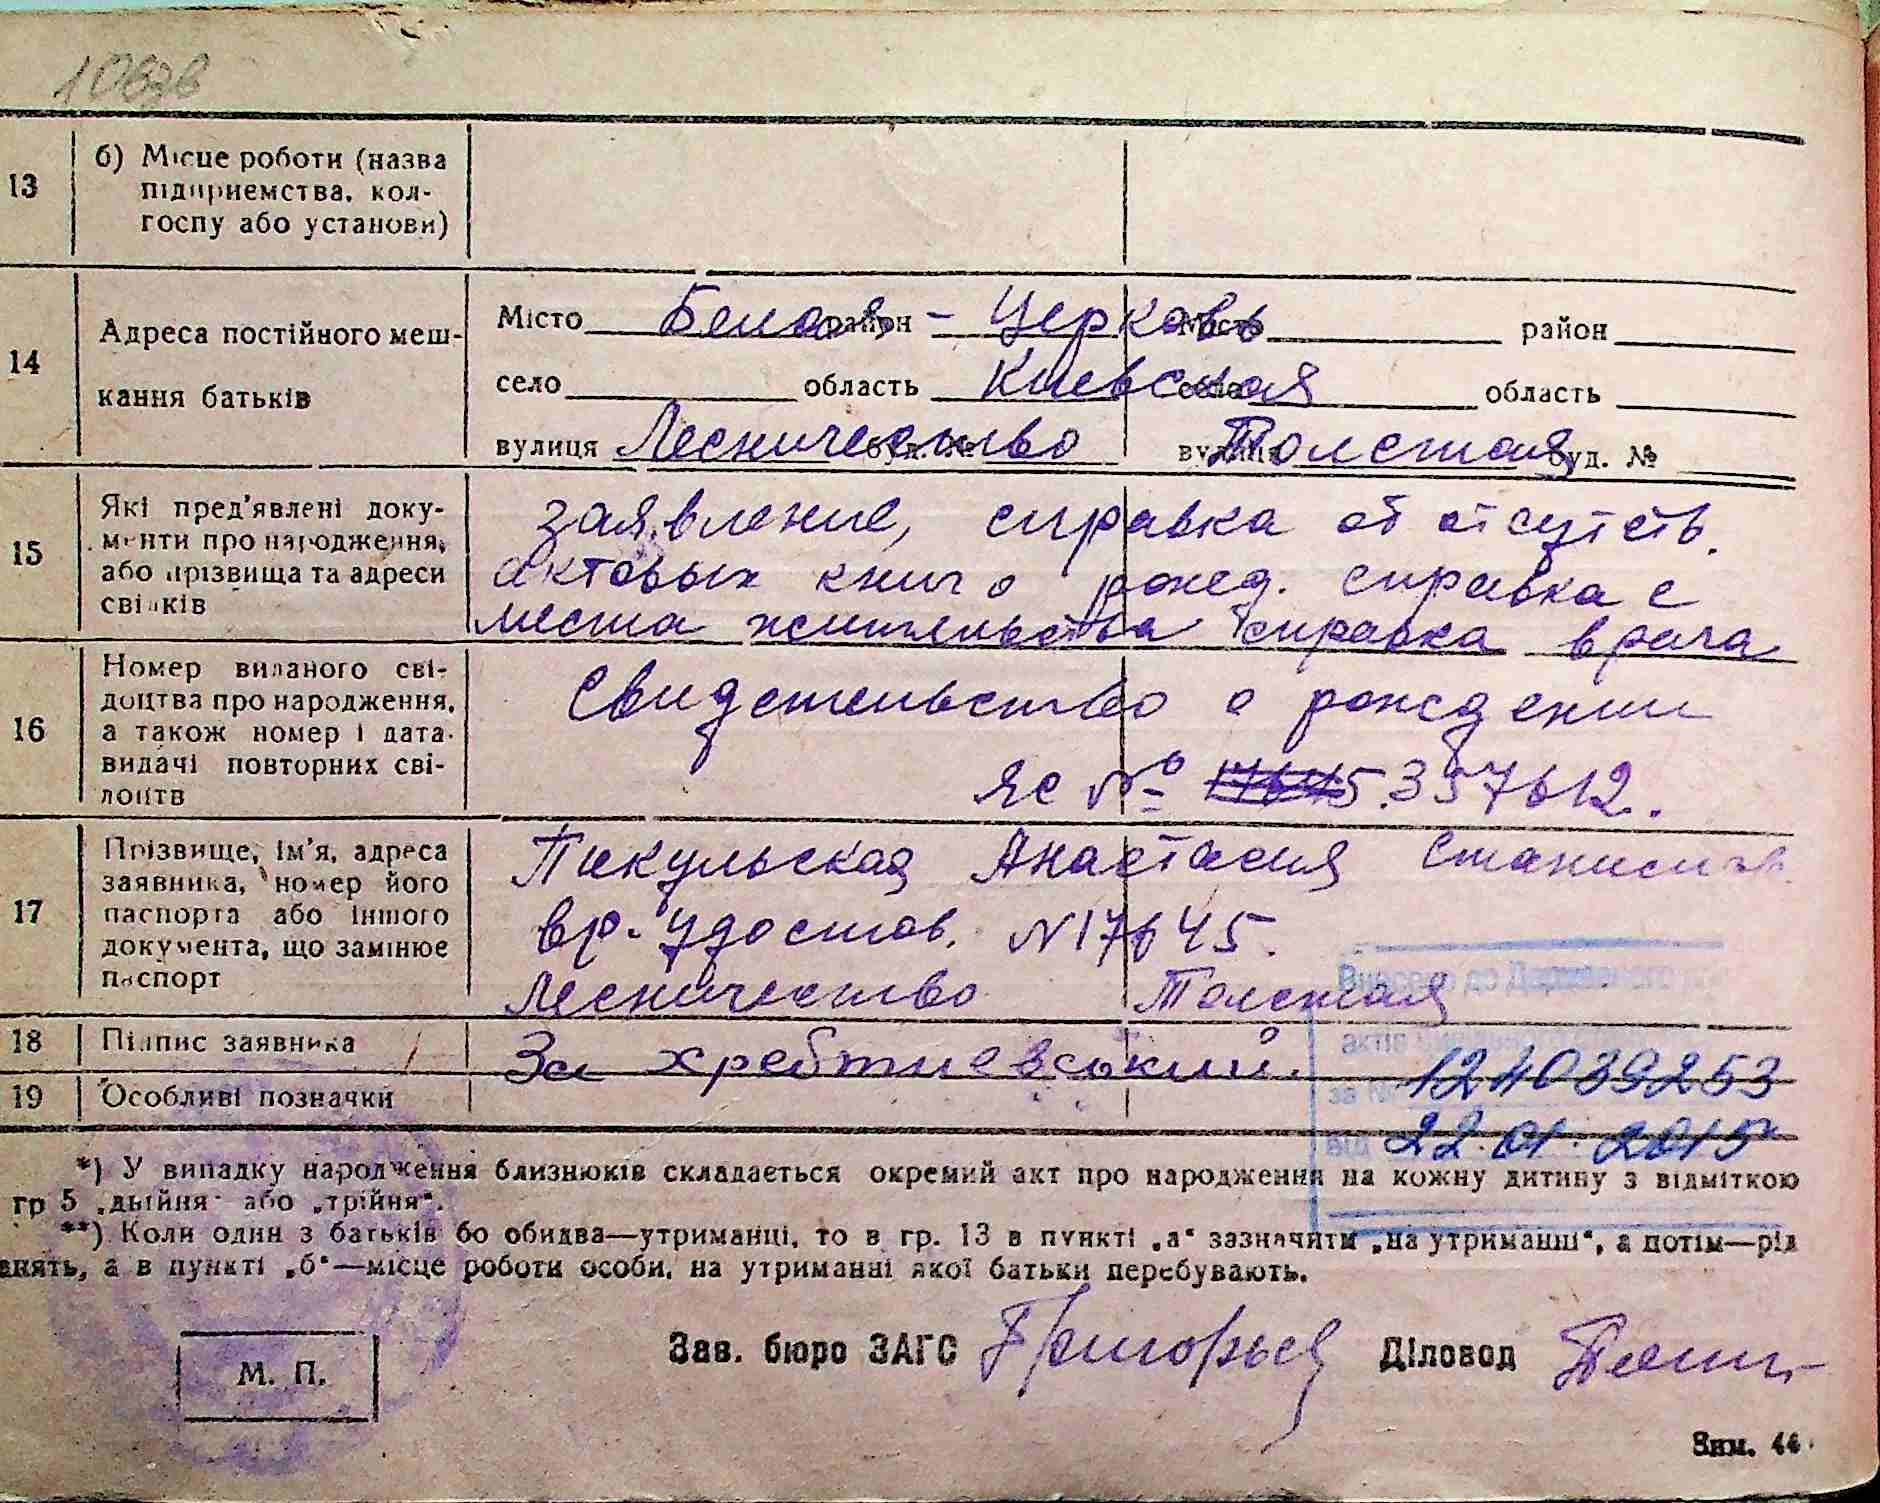 13 б) Місце роботи (назва
підприємства, кол-
госпу або установи)
14 Адреса постійного меш-
кання батьків
Місто Белая район - Церковь Місто район
село область Киевская село область
вулиця Лесничество буд. № вулиця Толстая буд. №
15 Які пред'явлені доку-
менти про народження,
або прізвища та адреси
свідків
заявление, справка об отсутств.
актовых книг о рожд. справка с
места жительства справка врача
16 Номер виданого сві-
доцтва про народження,
а також номер і дата
видачі повторних сві-
доцтв
Свидетельство о рождении
ЯС № 17645. 357612.
17 Прізвище, ім'я, адреса
заявника, номер його
паспорта або іншого
документа, що замінює
паспорт
Пикульская Анастасия Станислав.
вр. удостов. N 17645.
Лесничество Толстая
Внесено до Державного
актів
18 Підпис заявника За хребтиевський.
за № 124039253
19 Особливі позначки
від 22.01.2015
*) У випадку народження близнюків складається окремий акт про народження на кожну дитину з відміткою
гр 5 „двійня" або „трійня".
**) Коли один з батьків бо обидва—утриманці, то в гр. 13 в пункті „а" зазначити „на утриманні", а потім—рід
анять, а в пункті „б"—місце роботи особи, на утриманні якої батьки перебувають.
М. П.
Зав. бюро ЗАГС Григорьев Діловод
Зим. 44